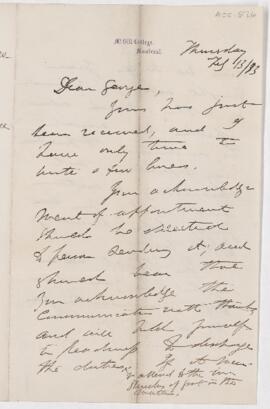 ACC-826
McGill College,
Montreal.
Thursday
Feby 15/83
Dear George,
Yours has just
been received, and I
have only time to
write a few lines.
Your acknowledg
ment of appointment
should be directed
to person sending it, and
should bear that
you acknowledge the
Communication with thanks
and will hold yourself
in readiness to discharge
the duties. If
& attend to the two
of